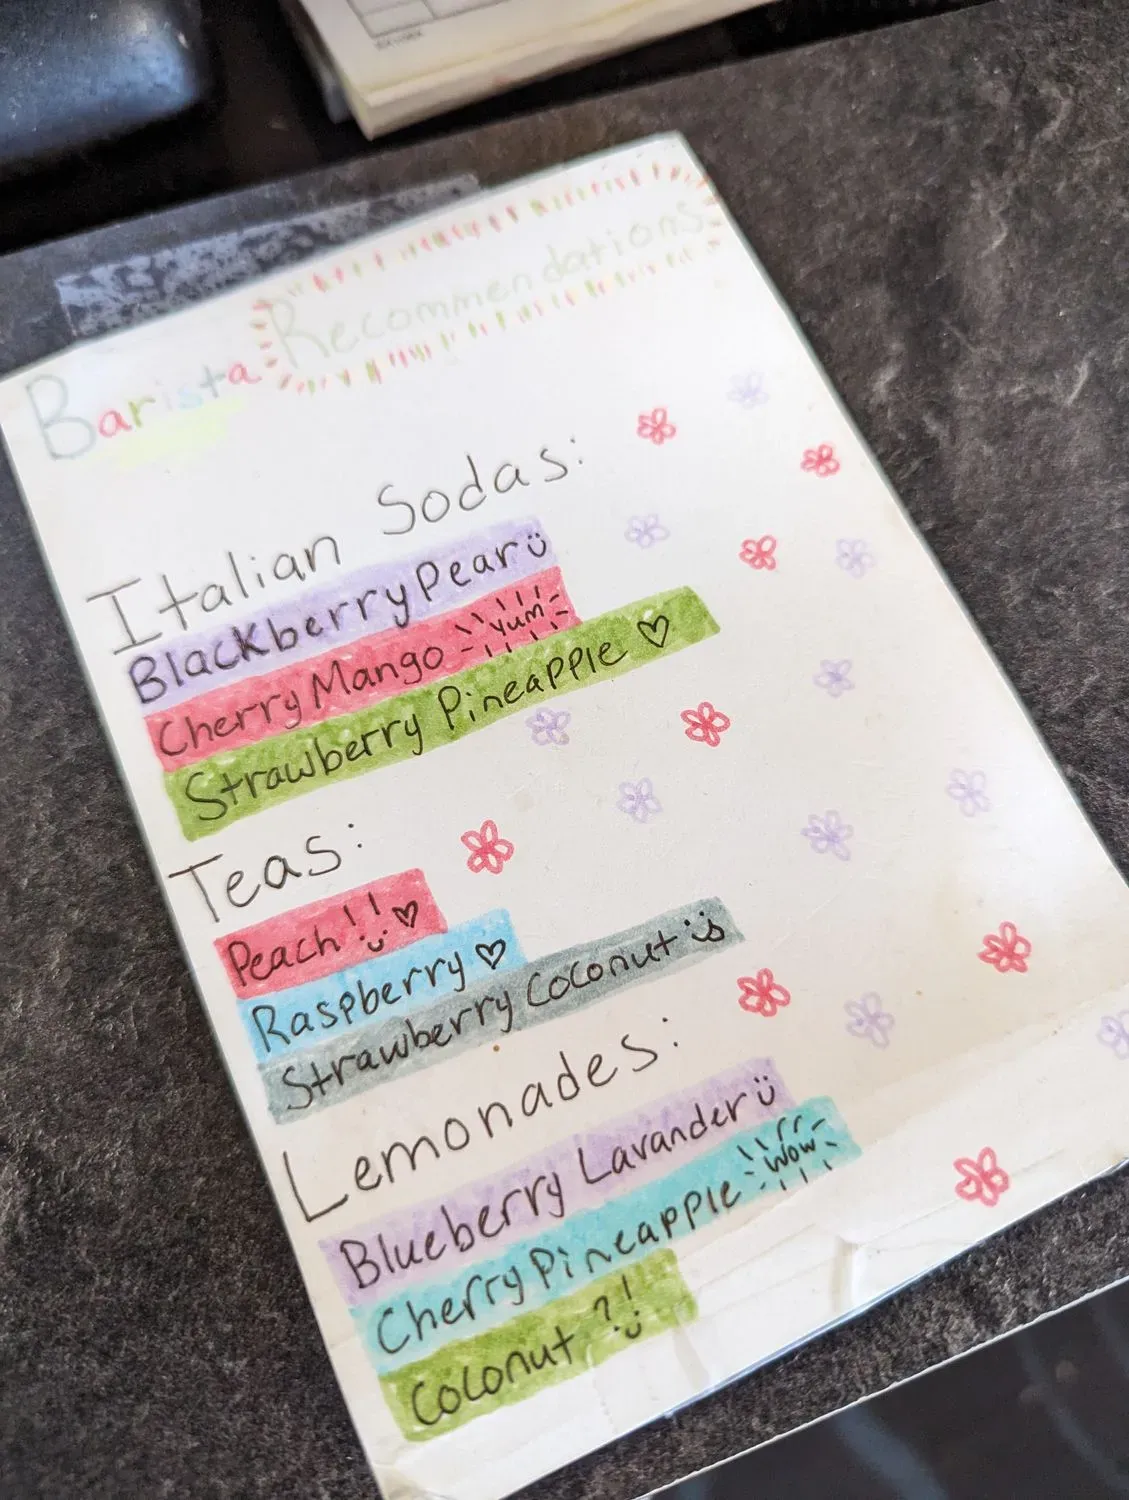 Barista Recommendations
Italian Sodas:
Blackberry Pear
Cherry Mango Yum
Strawberry Pineapple ♡
Teas:
Peach!! ♡
Raspberry ♡
Strawberry Coconut
Lemonades:
Blueberry Lavander
Cherry Pineapple Wow
Coconut ?!